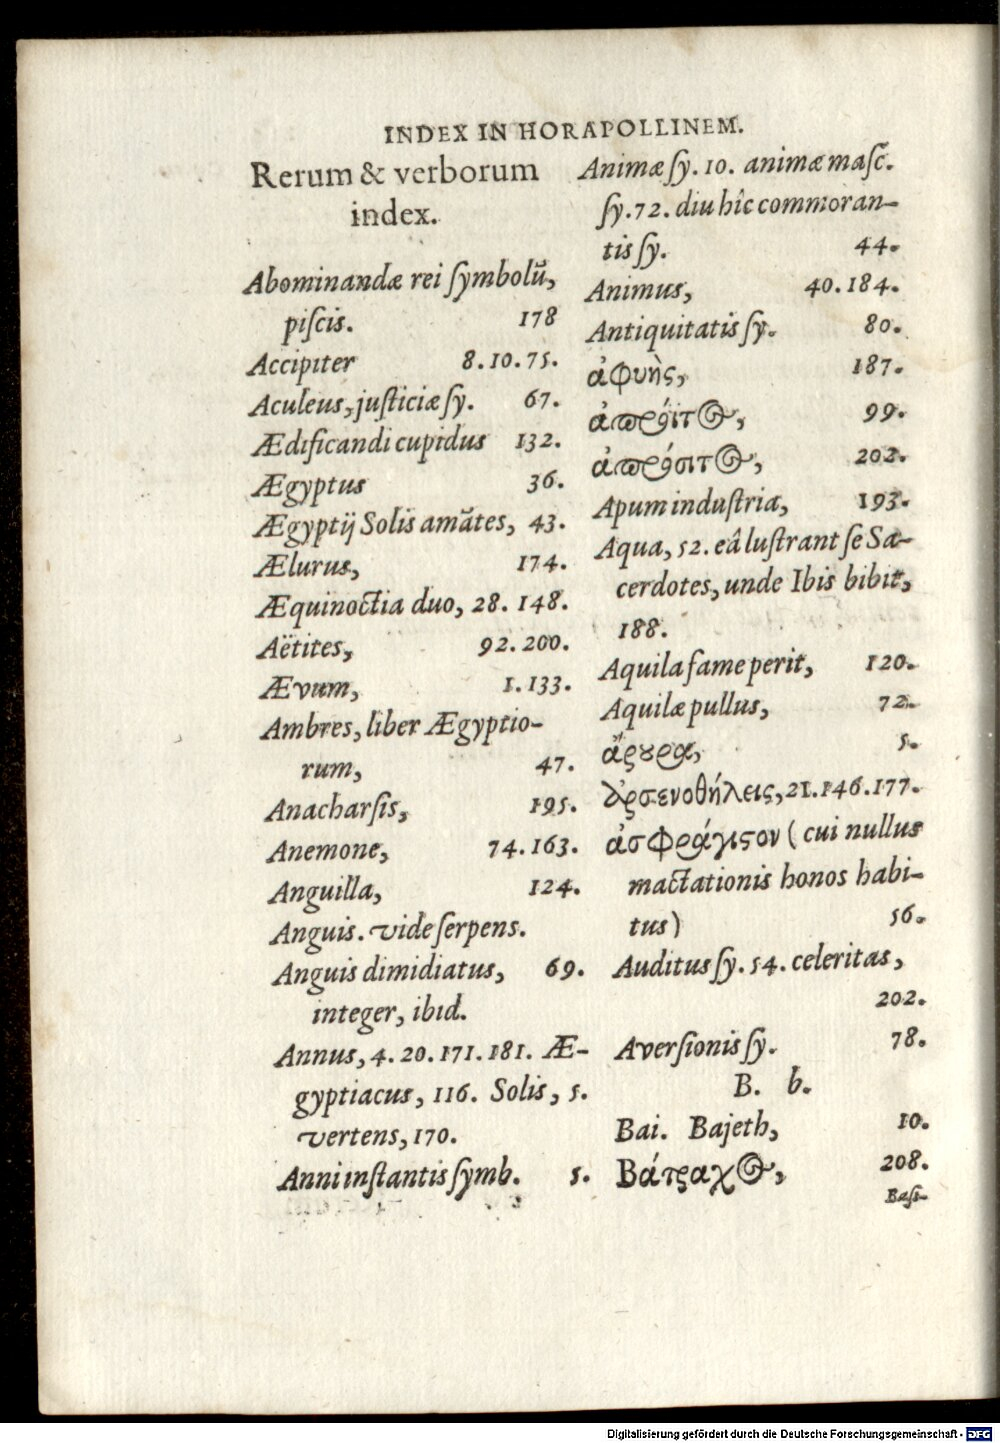 INDEX IN HORAPOLLINEM.
Rerum & verborum
index.
Abominandæ rei ſymbolũ,
piſcis. 178
Accipiter 8.10.75.
Aculeus, juſticiæ ſy. 67.
Ædificandi cupidus 132.
Ægyptus 36.
Ægyptij Solis amãtes, 43.
Ælurus, 174.
Æquinoctia duo, 28. 148.
Aëtites, 92.200.
Ævum, 1.133.
Ambres, liber Ægyptio-
rum, 47.
Anacharſis, 195.
Anemone, 74.163.
Anguilla, 124.
Anguis. vide ſerpens.
Anguis dimidiatus, 69.
integer, ibid.
Annus, 4. 20. 171. 181. Æ-
gyptiacus, 116. Solis, 5.
vertens, 170.
Anni inſtantis ſymb. 5.
Animæ ſy. 10. animæ maſc̃.
ſy. 72. diu hîc commoran-
tis ſy. 44.
Animus, 40.184.
Antiquitatis ſy. 80.
ἀφυὴς, 187.
99.
202.
Apum induſtria, 193.
Aqua, 52. eâ luſtrant ſe Sa-
cerdotes, unde Ibis bibit,
188.
Aquila fame perit, 120.
Aquilæ pullus, 72.
ἄρȣρα, 5.
ἀρσενοθήλεις, 21.146.177.
ἀσφράγιϛον ( cui nullus
mactationis honos habi-
tus ) 56.
Auditus ſy. 54. celeritas,
202.
Averſionis ſy. 78.
B. b.
Bai. Bajeth, 10.
Βάτραχος, 208.
Baſi-
Digitalisierung gefördert durch die Deutsche Forschungsgemeinschaft - DFG